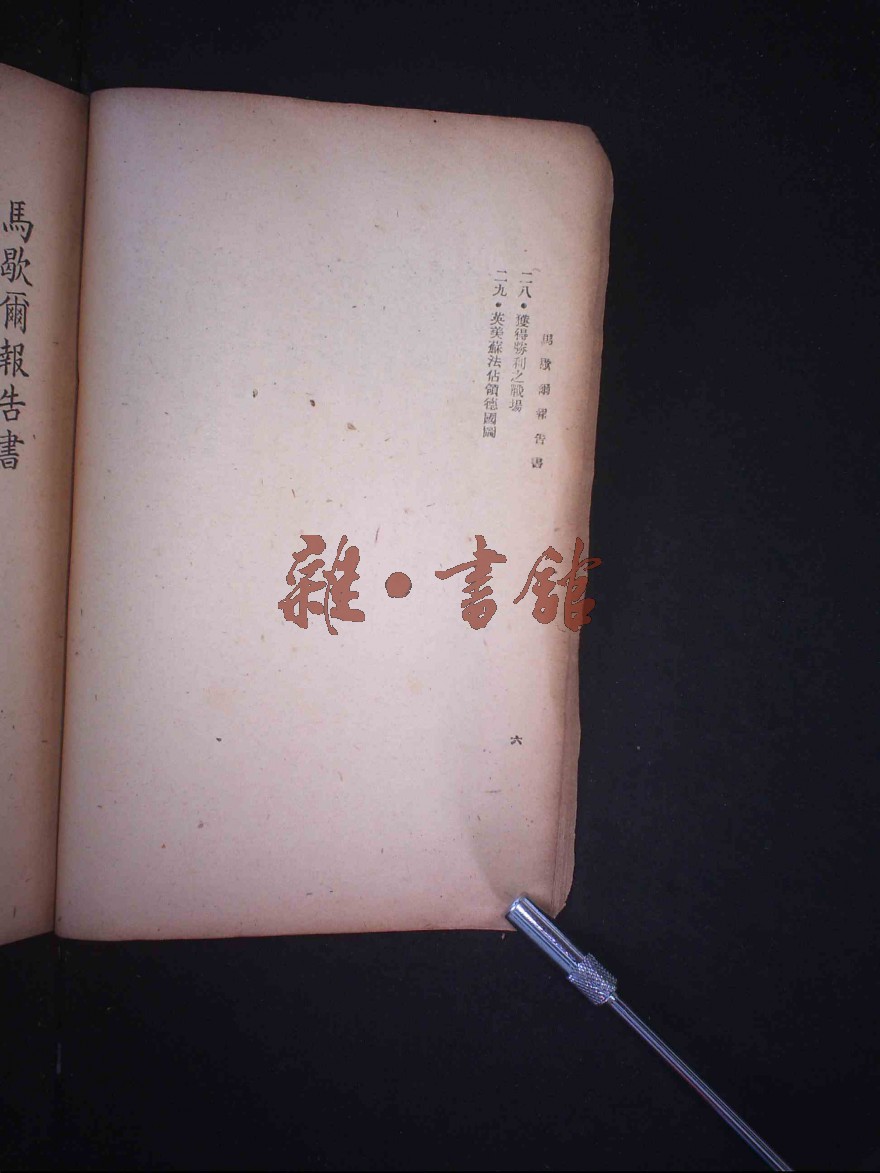 馬歇爾報告書
二八・獲得勝利之戰場
二九・英美蘇法佔領德國圖
六
馬歇爾報告書
雜・書館